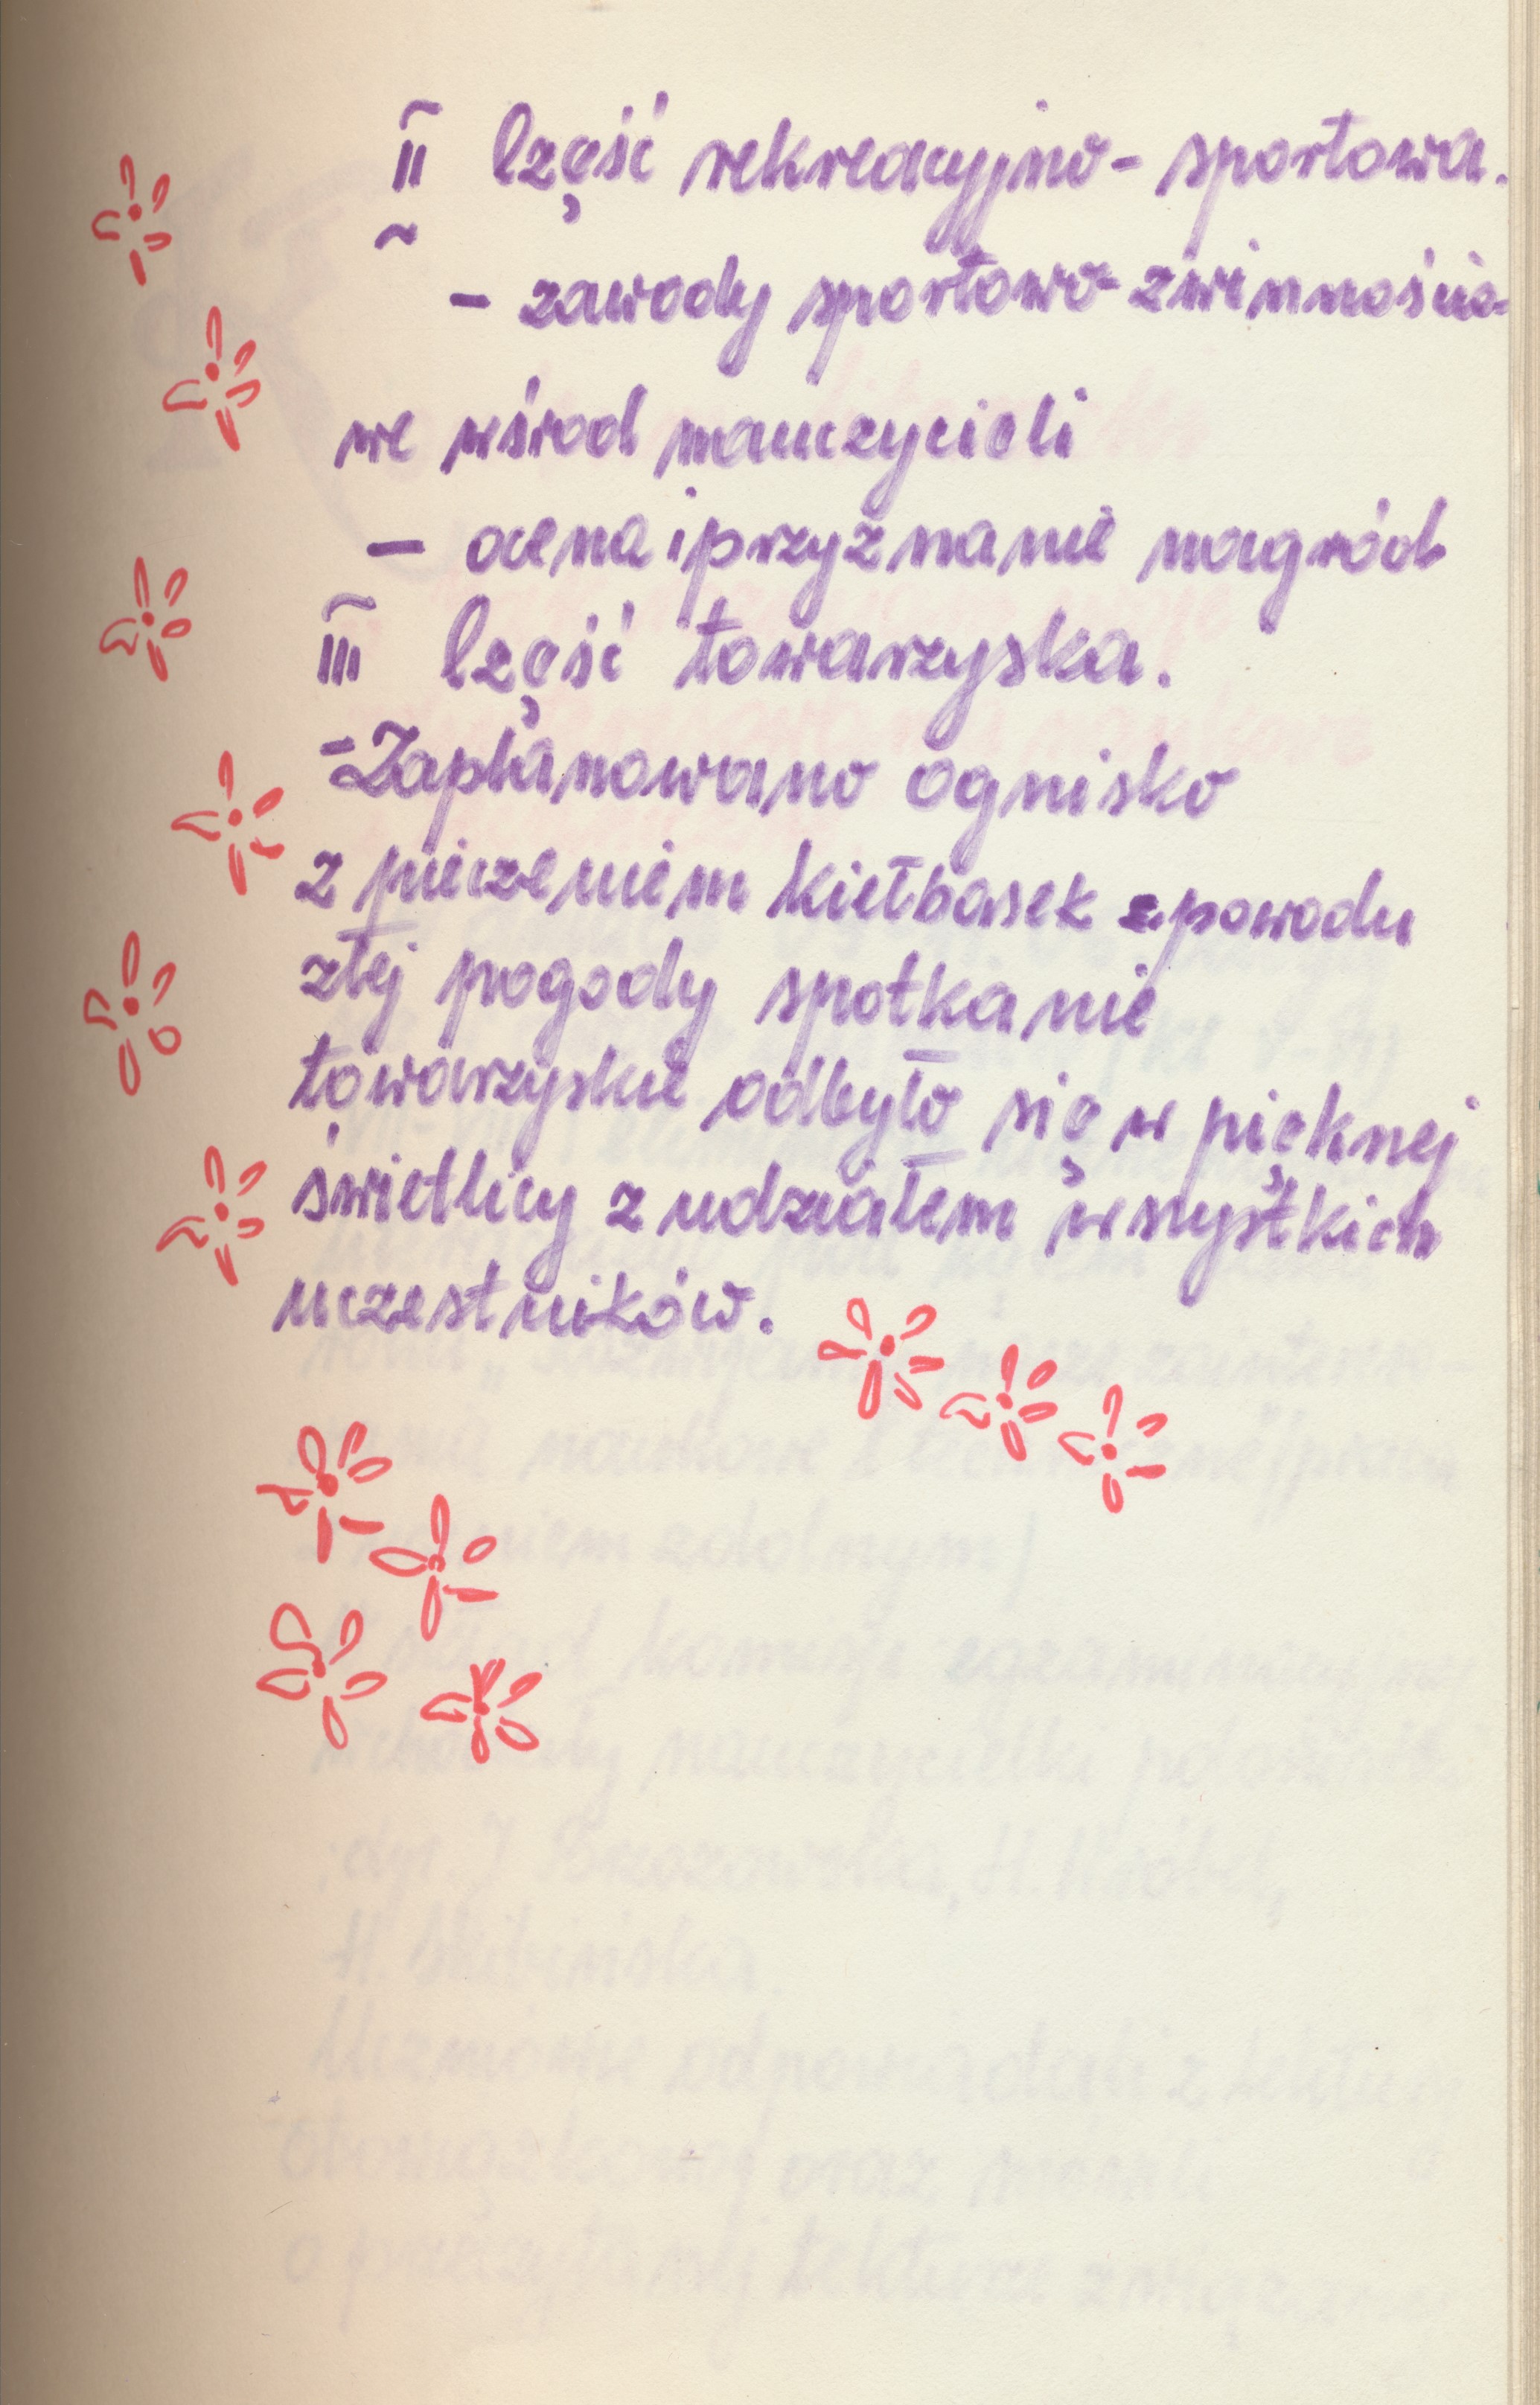 II Część rekreacyjno-sportowa.
- zawody sportowo-zwinnościo-
we wśrod nauczycieli
- ocena i przyznanie nagród
III Część towarzyska.
- Zaplanowano ognisko
z pieczeniem kiełbasek z powodu
złej pogody spotkanie
towarzyskie odbyło się w pięknej
świetlicy z udziałem wszystkich
uczestników.